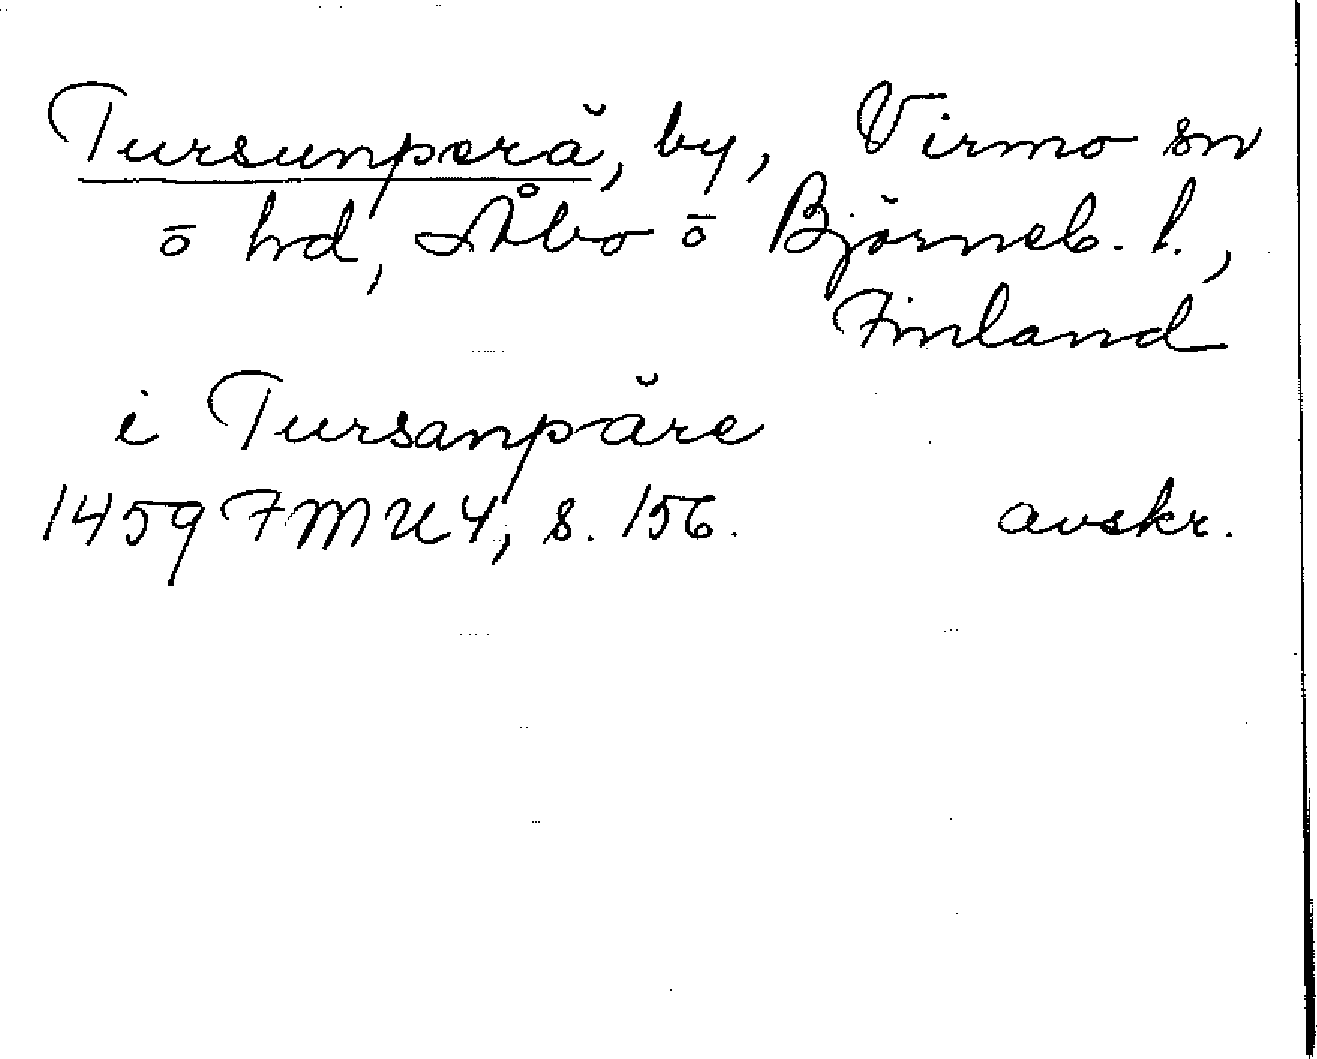 Tursunperä, by, Virmo sn
o hd, Åbo o Björneb. l.,
Finland
i Tursanpäre
1459 FMU 4, s. 156. avskr.